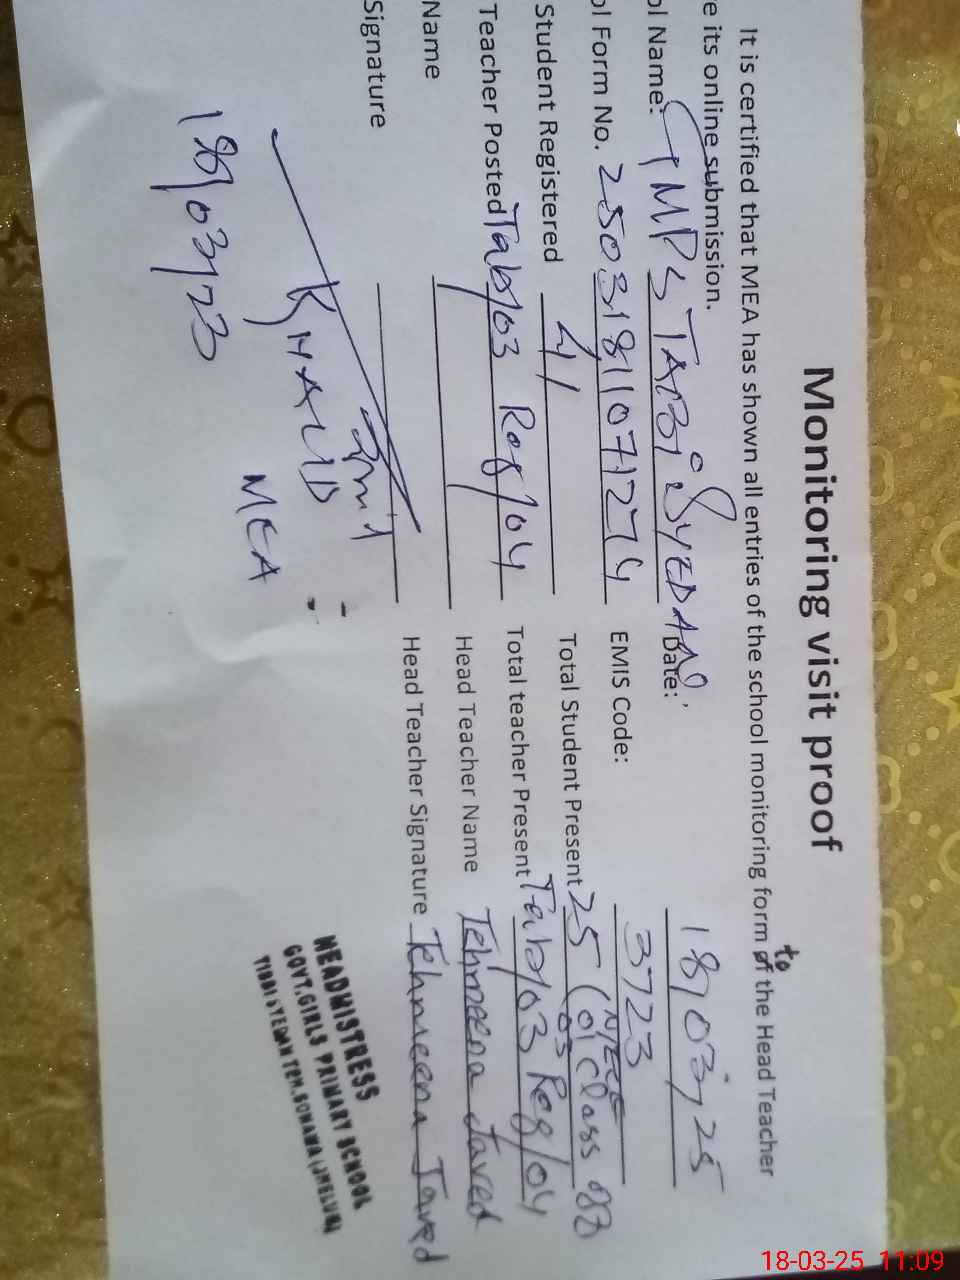 Monitoring visit proof
It is certified that MEA has shown all entries of the school monitoring form of to the Head Teacher
e its online submission.
ol Name: GMPS TABBI SYEDAN Date: 18/03/25
ol Form No. 25031811071274 EMIS Code: 3723
Student Registered 41 Total Student Present 25 (01 Class
Teacher Posted Tab/03 Reg/04 Total teacher Present Tab/03 Reg/04
Name Head Teacher Name Tehmeena Javed
Signature Head Teacher Signature Tehmeena Javed
KHALID
MEA
18/03/23
HEADMISTRESS
GOVT.GIRLS PRIMARY SCHOOL
TIBBI SYEDAN TEH.SOHAWA (JHELUM)
18-03-25 11:09